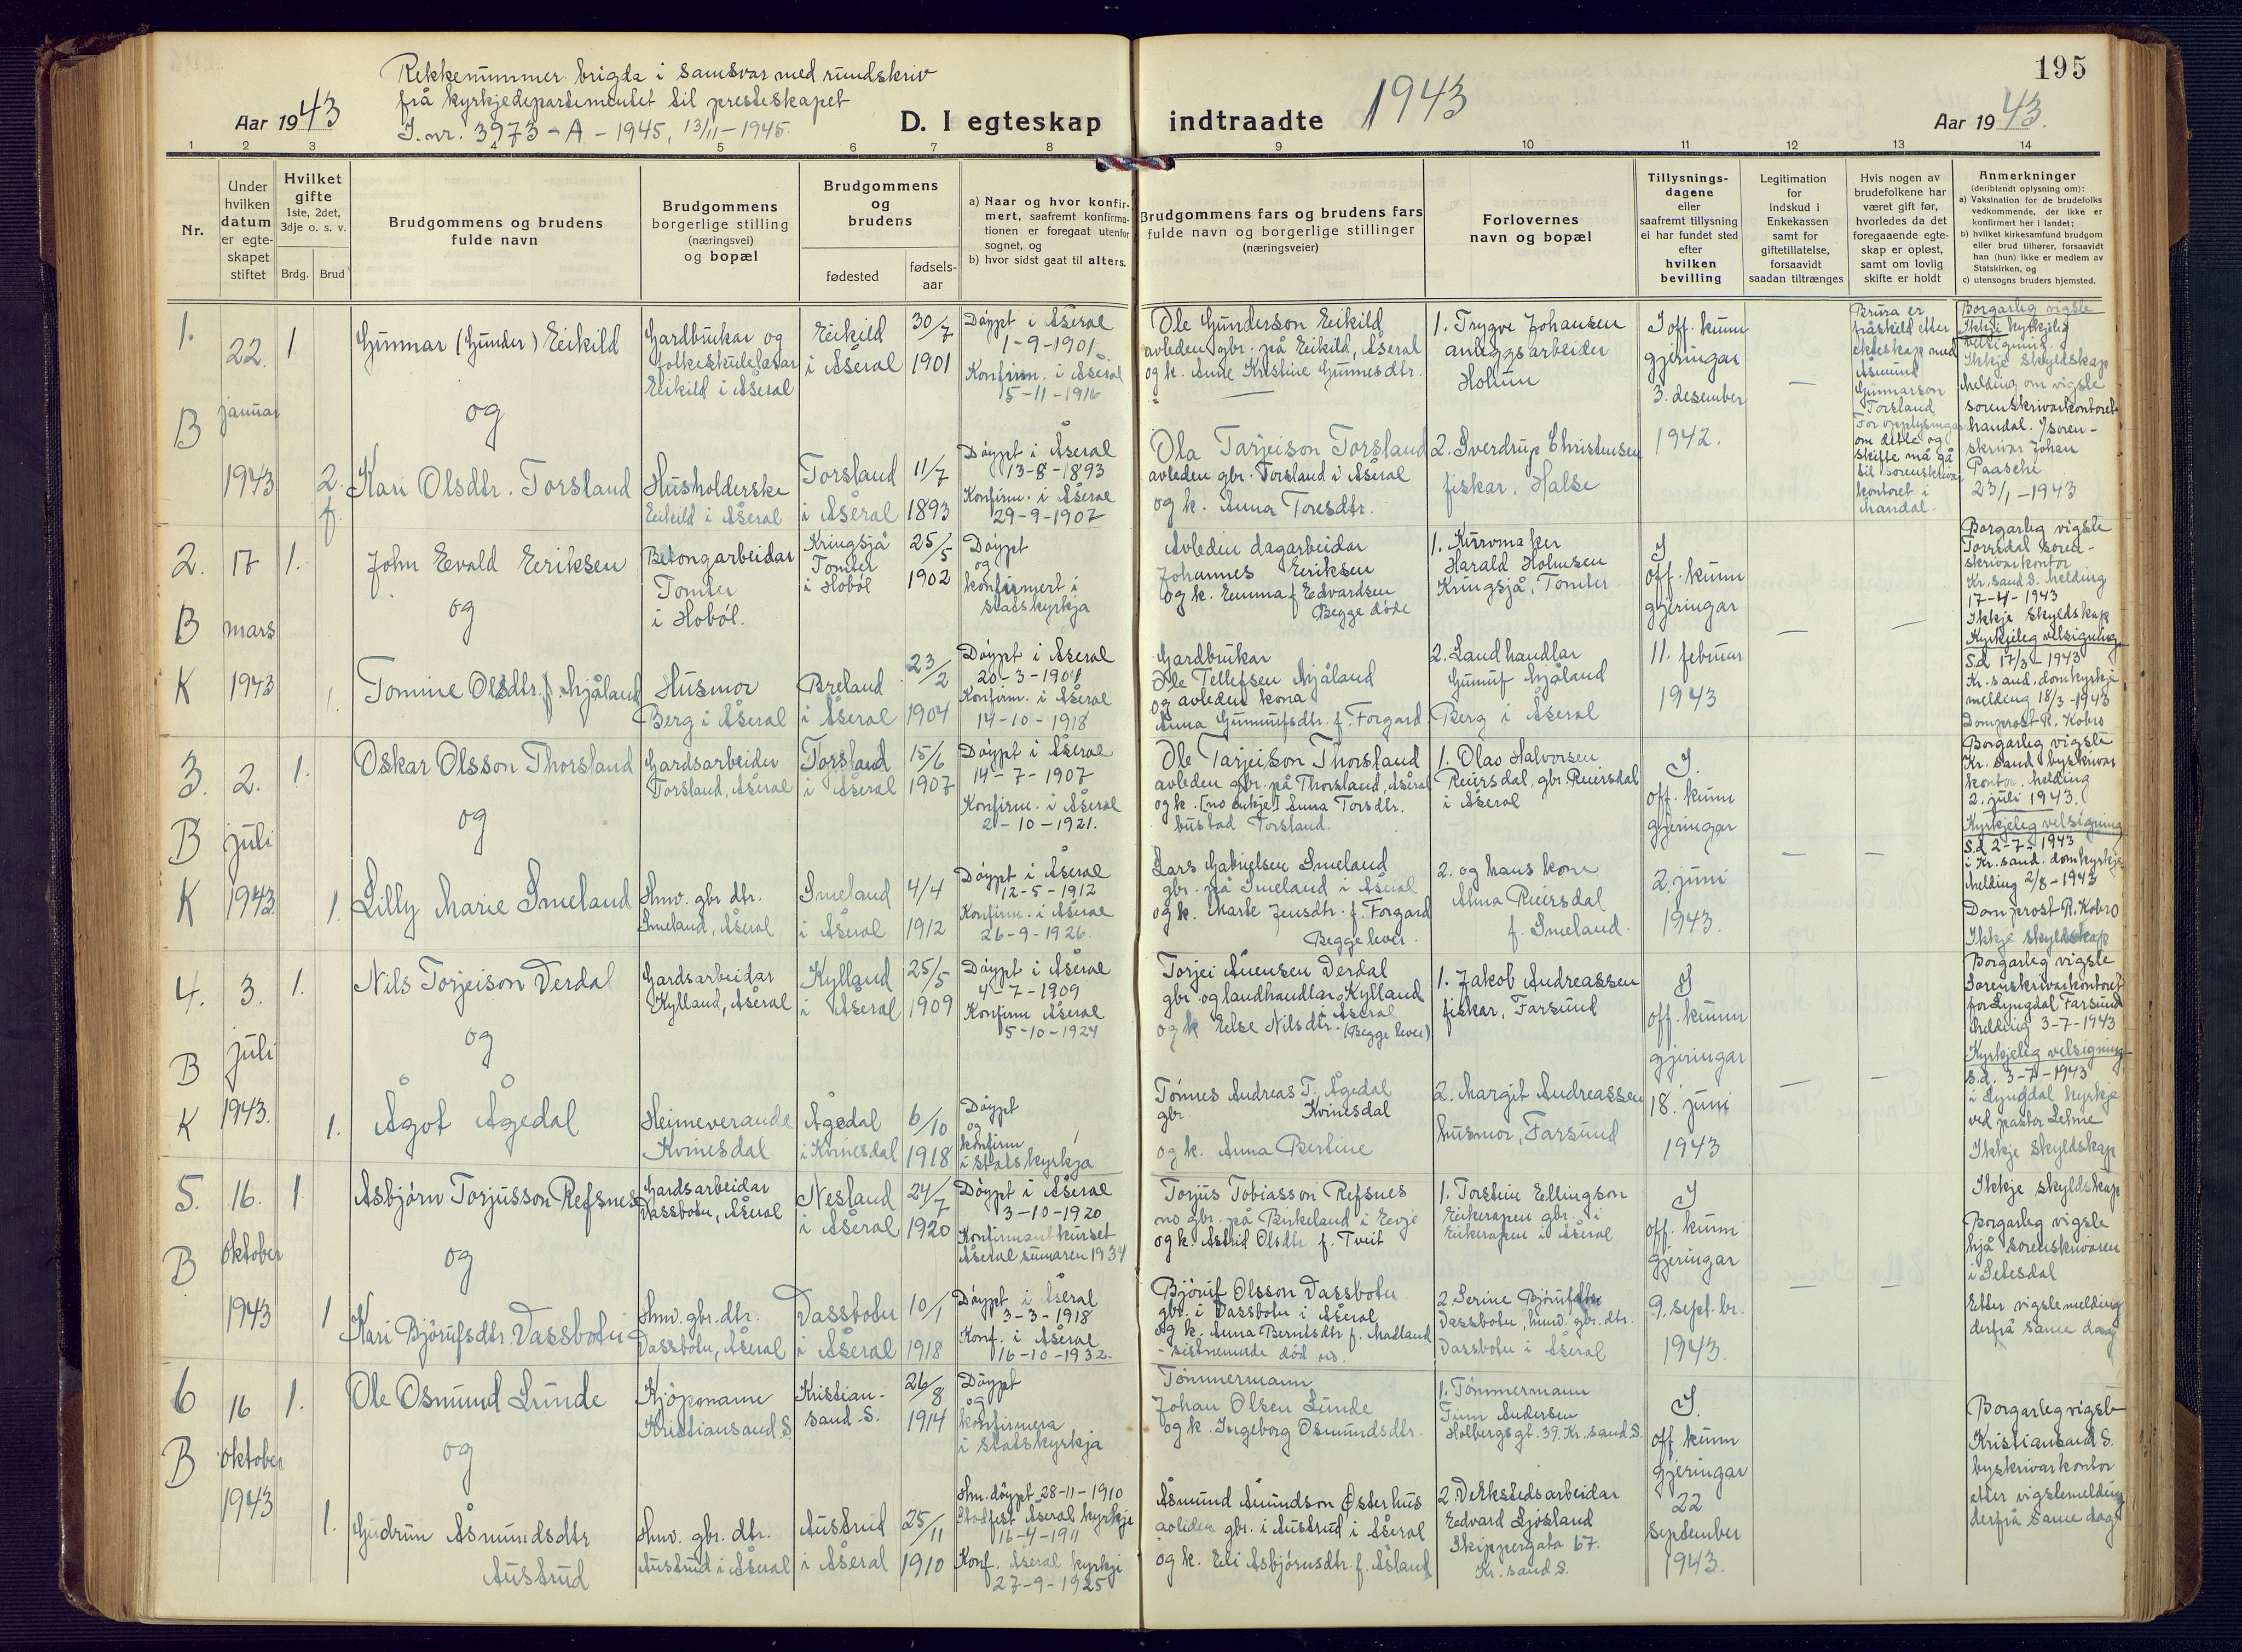 195
Rekkenummer brigda i samsvar med rundskriv
frå kyrkjedepartementet til presteskapet
J.nr. 3973 - A - 1945, 13/11 - 1945.
Aar 1943
D. I egteskap indtraadte 1943
Aar 1943.
1 2 3 4 5 6 7 8 9 10 11 12 13 14
Nr.
Under
hvilken
datum
er egte-
skapet
stiftet
Hvilket
gifte
1ste, 2det,
3dje o. s. v.
Brdg. Brud
Brudgommens og brudens
fulde navn
Brudgommens
borgerlige stilling
(næringsvei)
og bopæl
Brudgommens
og
brudens
fødested
fødsels-
aar
a) Naar og hvor konfir-
mert, saafremt konfirma-
tionen er foregaat utenfor
sognet, og
b) hvor sidst gaat til alters.
Brudgommens fars og brudens fars
fulde navn og borgerlige stillinger
(næringsveier)
Forlovernes
navn og bopæl
Tillysnings-
dagene
eller
saafremt tillysning
ei har fundet sted
efter
hvilken
bevilling
Legitimation
for
indskud i
Enkekassen
samt for
giftetillatelse,
forsaavidt
saadan tiltrænges
Hvis nogen av
brudefolkene har
været gift før,
hvorledes da det
foregaaende egte-
skap er opløst,
samt om lovlig
skifte er holdt
Anmerkninger
(deriblandt oplysning om):
a) Vaksination for de brudefolks
vedkommende, der ikke er
konfirmert her i landet;
b) hvilket kirkesamfund brudgom
eller brud tilhører, forsaavidt
han (hun) ikke er medlem av
Statskirken, og
c) utensogns bruders hjemsted.
1.
B
22.
januar
1943
1
Gunnar (Gunder) Eikild
og
Gardbrukar og
folkeskulelærar
Eikild i Åseral
Eikild
i Åseral
30/7
1901
Döypt i Åseral
1-9-1901
Konfirm. i Åseral
5-11-1916
Ole Gunderson Eikild
avleden gbr. på Eikild, Åseral
og k. Anne Kristine Gunnesdtr.
1. Trygve Johansen
anleggsarbeider
Holum
I off. kunn
gjeringar
3. desember
1942.
2.
f.
Kari Olsdtr. Torsland
Husholderske
Eikild i Åseral
Torsland
i Åseral
11/7
1893
Döypt i Åseral
13-8-1893
Konfirm. i Åseral
29-9-1907
Ola Tarjeison Torsland
avleden gbr. Torsland i Åseral
og k. Anna Toresdtr.
2. Sverdrup Christensen
fiskar. Halse
Brura er
fråskild etter
ekteskap med
Åsmund
Gunnarson
Torsland
For opplysingar
om dette og
skifte må gå
til sorenskrivar
kontoret i
Mandal.
Borgarleg vigsle
Ikkje kyrkjeleg
velsigning.
Ikkje skyldskap
Melding om vigsle
sorenskrivarkontoret
Mandal. v/ soren-
skrivar Johan
Paasche
23/1 - 1943
2.
B
K
17
mars
1943
1.
John Edvald Eriksen
og
Betongarbeidar
Tomter
i Hoböl.
Kringsjå
Tomter
i Hoböl
25/5
1902
Döypt
og
konfirmert i
statskyrkja
Avleden dagarbeidar
Johannes Eriksen
og k. Emma f. Edvardsen
Begge döde
1. Kurvmaker
Harald Holmsen
Kringsjå, Tomter
I
off. kunn
gjeringar
11. februar
1943
Tomine Olsdtr. f. Mjåland
Husmor
Berg i Åseral
Breland
i Åseral
23/2
1904
Döypt i Åseral
20-3-1904
Konfirm. i Åseral
14-10-1918
Gardbrukar
Ole Tellefsen Mjåland
og avleden kona
Anna Gunnufsdtr. f. Forgard
2. Landhandlar
Gunuf Mjåland
Berg i Åseral
Borgarleg vigsle
Torrsdal soren-
skrivarkontor
Kr.sand S. melding
17-4-1943
Ikkje skyldskap
Kyrkjeleg velsigning
s.d. 17/3 - 1943
Kr.sand. domkyrkje
melding 18/3 - 1943
Domprost R. Kobro
3.
B
K
2.
juli
1943.
1.
Oskar Olsson Thorsland
og
Gardsarbeider
Torsland, Åseral
Torsland
i Åseral
15/6
1907
Döypt i Åseral
14-7-1907
Konfirm. i Åseral
2-10-1921.
Ole Tarjeison Thorsland
avleden gbr. på Thorsland, Åseral
og k. [no enkje] Anna Torsdtr.
bustad Torsland.
1. Olao Halvorsen
Reiersdal, gbr. Reiersdal
i Åseral
I.
off. kunn
gjeringar
2. juni
1943.
1.
Lilly Marie Smeland
Hmv. gbr. dtr.
Smeland, Åseral
Smeland
i Åseral
4/4
1912
Döypt i Åseral
12-5-1912
Konfirm. i Åseral
26-9-1926.
Lars Gabrielsen Smeland
gbr. på Smeland i Åseral
og k. Marte Jensdtr. f. Forgard
Begge lever.
2. og hans kone
Alma Reiersdal
f. Smeland.
Borgarleg vigsle
Kr.sand byskrivar
kontor. Melding
2. juli 1943.
Kyrkjeleg velsigning
s.d. 2-7-1943
i Kr.sand. domkyrkje
Melding 2/8 - 1943
Domprost R. Kobro
Ikkje skyldskap
4.
B
K
3.
juli
1943.
1.
Nils Torjeison Verdal
og
Gardsarbeidar
Kylland, Åseral
Kylland
i Åseral
25/5
1909
Döypt i Åseral
4-7-1909
Konfirm Åseral
5-10-1924
Torjei Auensen Verdal
gbr og landhandlar Kylland
i Åseral
og k Else Nilsdtr. (Begge lever)
1. Jakob Andreassen
fiskar, Farsund
I
off. kunn
gjeringar
18. juni
1943
1.
Ågot Ågedal
Heimeverande
Kvinesdal
Ågedal
i Kvinesdal
6/10
1918
Döypt
og
konfirm
i statskyrkja
Tönnes Andreas T. Ågedal
gbr. Kvinesdal
og k. Anna Bertine
2. Margit Andreassen
husmor, Farsund
Borgarleg vigsle
Sorenskrivarkontoret
for Lyngdal Farsund
Melding 3-7-1943
Kyrkjeleg velsigning
s.d. 3-7-1943
i Lyngdal kyrkje
ved pastor Lehne
Ikkje skyldskap
5.
B
16.
oktober
1943
1
Asbjörn Torjusson Refsnes
og
Gardsarbeidar
Vassbotn, Åseral
Nesland
i Åseral
24/7
1920
Döypt i Åseral
3-10-1920
Konfirmantkurset
Åseral sumaren 1934
Torjus Tobiasson Refsnes
no gbr. på Birkeland i Evje
og k. Astrid Olsdtr f. Tveit
1. Torstein Ellingson
Eikerapen gbr. i
Eikerapen i Åseral
I
off. kunn
gjeringar
9. sept.br.
1943.
1
Kari Björufsdtr. Vassbotn
Hmv. gbr. dtr.
Vassbotn, Åseral
Vassbotn
i Åseral
10/1
1918
Döypt i Åseral
3-3-1918
Konf. i Åseral
16-10-1932.
Björuf Olsson Vassbotn
gbr. i Vassbotn i Åseral
og k. Anna Berntsdtr f. Madland
- sistnemnde död no.
2. Serine Björufsdtr
Vassbotn, hmv. gbr. dtr.
Vassbotn i Åseral
Ikkje skyldskap
Borgarleg vigsle
hjå sorenskrivaren
i Setesdal
Etter vigslemelding
derfrå same dag
6
B
16
oktober
1943
1.
Ole Osmund Lunde
og
Kjöpmann
Kristiansand S.
Kristian-
sand S.
26/8
1914
Döypt
og
konfirmera
i statskyrkja
Tömmermann
Johan Olsen Lunde
og k. Ingeborg Osmundsdtr.
1. Tömmermann
Finn Andersen
Holbergsgt. 39. Kr.sand S.
I.
off. kunn
gjeringar
22
september
1943.
1.
Gudrun Åsmundsdtr
Austrud
Hmv. gbr. dtr.
Austrud i Åseral
Austrud
i Åseral
25/11
1910
Hm. döypt 28-11-1910
Stadfest Åseral kyrkje
16-4-1911
Konf. Åseral kyrkje
27-9-1925
Åsmund Åmundson Österhus
avliden gbr. i Austrud i Åseral
og k. Eli Asbjörnsdtr. f. Åsland
2. Verkstedsarbeidar
Edvard Ljosland
Skippergata 67.
Kr.sand S.
Borgarleg vigsle
Kristiansand S.
byskrivarkontor
etter vigslemelding
derfrå same dag